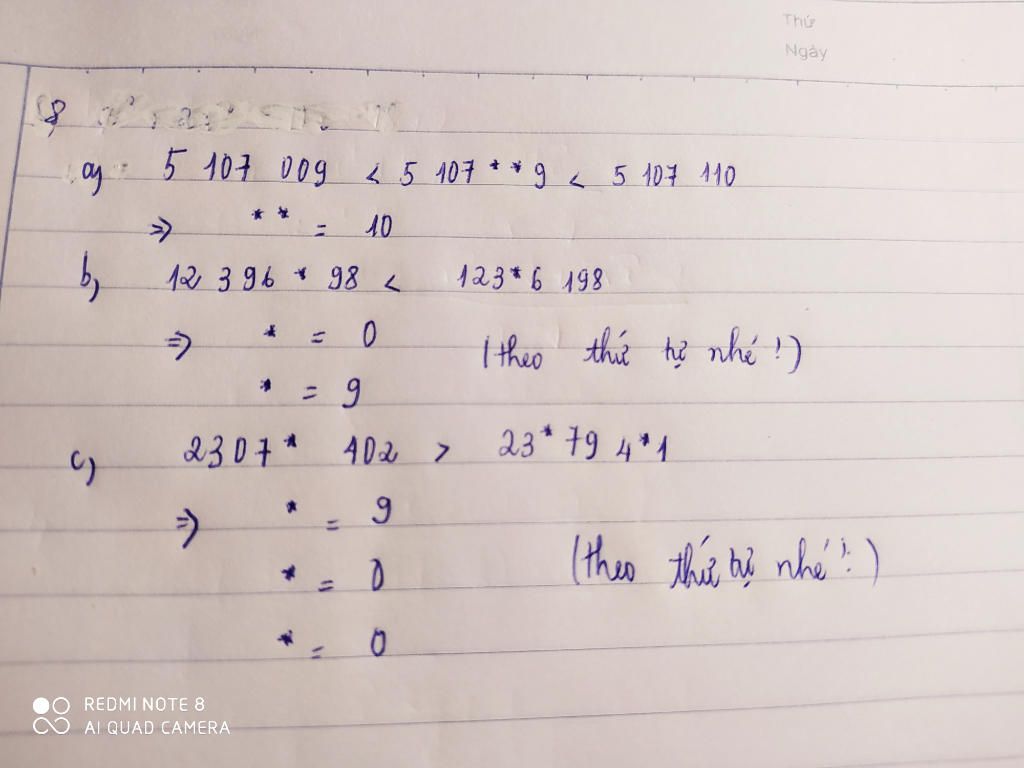 Thứ
Ngày
8
a) 5 107 009 < 5 107 * * 9 < 5 107 110
=> * * = 10
b) 12 396 * 98 < 123 * 6 198
=> * = 0 (theo thứ tự nhé !)
* = 9
c) 2307 * 402 > 23 * 79 4 * 1
=> * = 9
* = 0 (theo thứ tự nhé !)
* = 0
REDMI NOTE 8
AI QUAD CAMERA